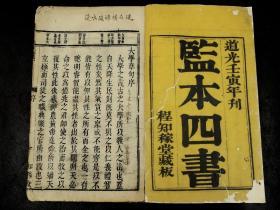 道光壬寅年刊
監本四書
程知稼堂藏板
大學章句序
大學之書古之大學所以教人之法也蓋
自天降生民則既莫不與之以仁義禮智
之性矣然其氣質之稟或不能齊是以不
能皆有以知其性之所有而全之也一有
聰明睿智能盡其性者出於其間則天必
命之以為億兆之君師使之治而教之以
復其性此伏羲神農黃帝堯舜所以繼天
立極而司徒之職典樂之官所由設也三